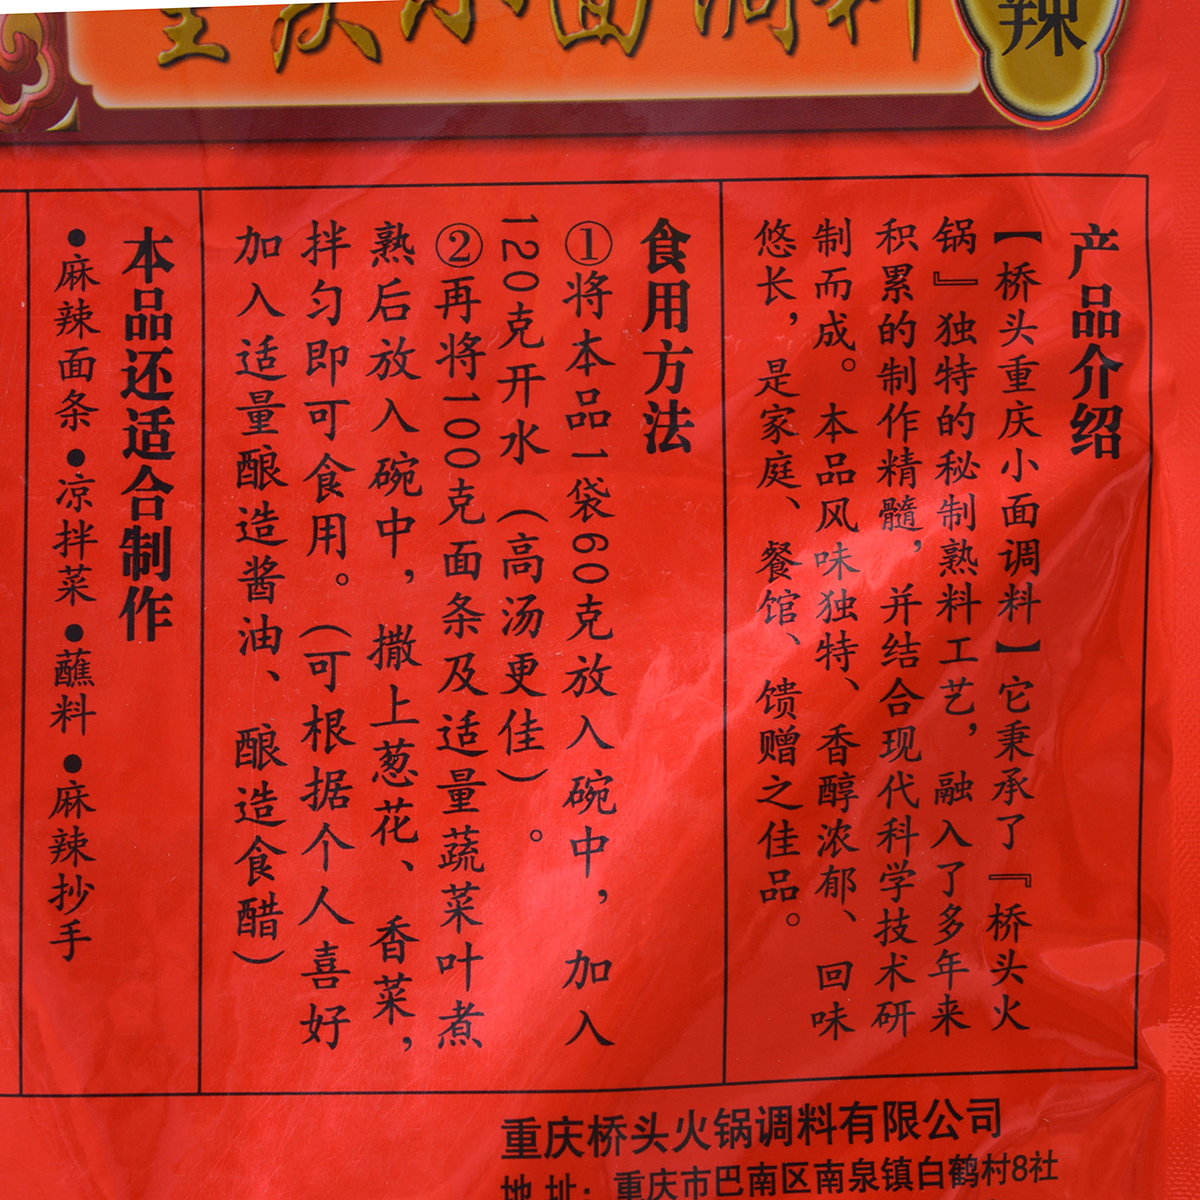 重庆小面调料
辣
产品介绍
【桥头重庆小面调料】它秉承了『桥头火
锅』独特的秘制熟料工艺，融入了多年来
积累的制作精髓，并结合现代科学技术研
制而成。本品风味独特、香醇浓郁、回味
悠长，是家庭、餐馆、馈赠之佳品。
食用方法
①将本品1袋60克放入碗中，加入
120克开水（高汤更佳）。
②再将100克面条及适量蔬菜叶煮
熟后放入碗中，撒上葱花、香菜，
拌匀即可食用。（可根据个人喜好
加入适量酿造酱油、酿造食醋）
本品还适合制作
●麻辣面条●凉拌菜●蘸料●麻辣抄手
重庆桥头火锅调料有限公司
地址：重庆市巴南区南泉镇白鹤村8社